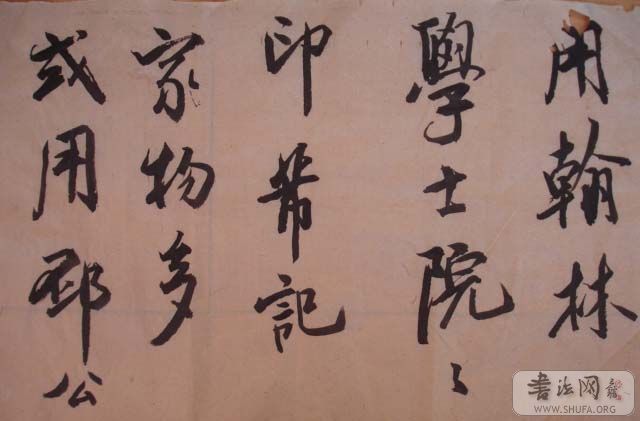 用翰林
學士院々
印芾記
家物多
或用邳公
书法网
WWW.SHUFA.ORG